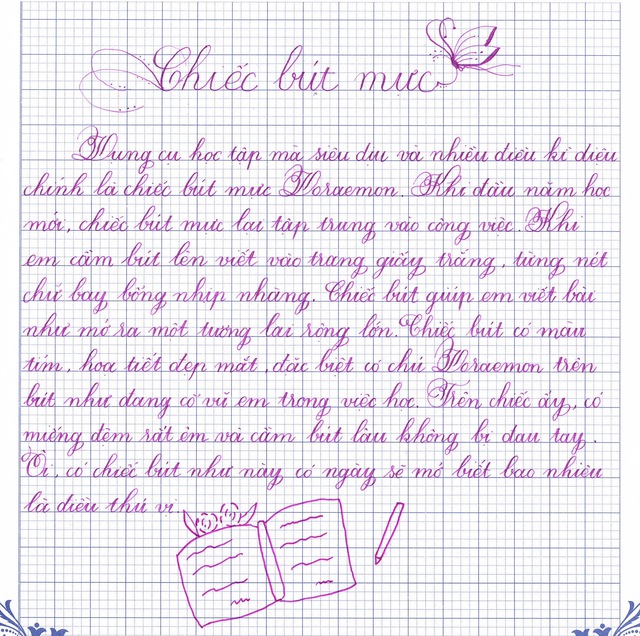 Chiếc bút mực
Dụng cụ học tập mà siêu dịu và nhiều điều kì diệu
chính là chiếc bút mực Doraemon. Khi đầu năm học
mới, chiếc bút mực lại tập trung vào công việc. Khi
em cầm bút lên viết vào trang giấy trắng, từng nét
chữ bay bổng nhịp nhàng. Chiếc bút giúp em viết bài
như mở ra một tương lai rộng lớn. Chiếc bút có màu
tím, họa tiết đẹp mắt, đặc biệt có chú Doraemon trên
bút như đang cổ vũ em trong việc học. Trên chiếc ấy, có
miếng đệm rất êm và cầm bút lâu không bị đau tay.
Ôi, có chiếc bút như này có ngày sẽ mở biết bao nhiêu
là điều thú vị